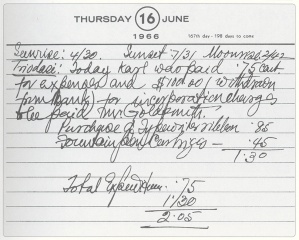 THURSDAY 16 JUNE
1966 167th day - 198 days to come
Sunrise: 4/30. Sunset 7/31 Moonrise
Today Karl was paid .75 cent
for expenses and $100.00 (withdrawn
from Bank) for incorporation charges
to be paid Mr Goldsmith.
Purchase of Typewriter ribbon .85
Fountain pen Cartridges — .45
1.30
Total Expenditure: .75
1/30
2.05